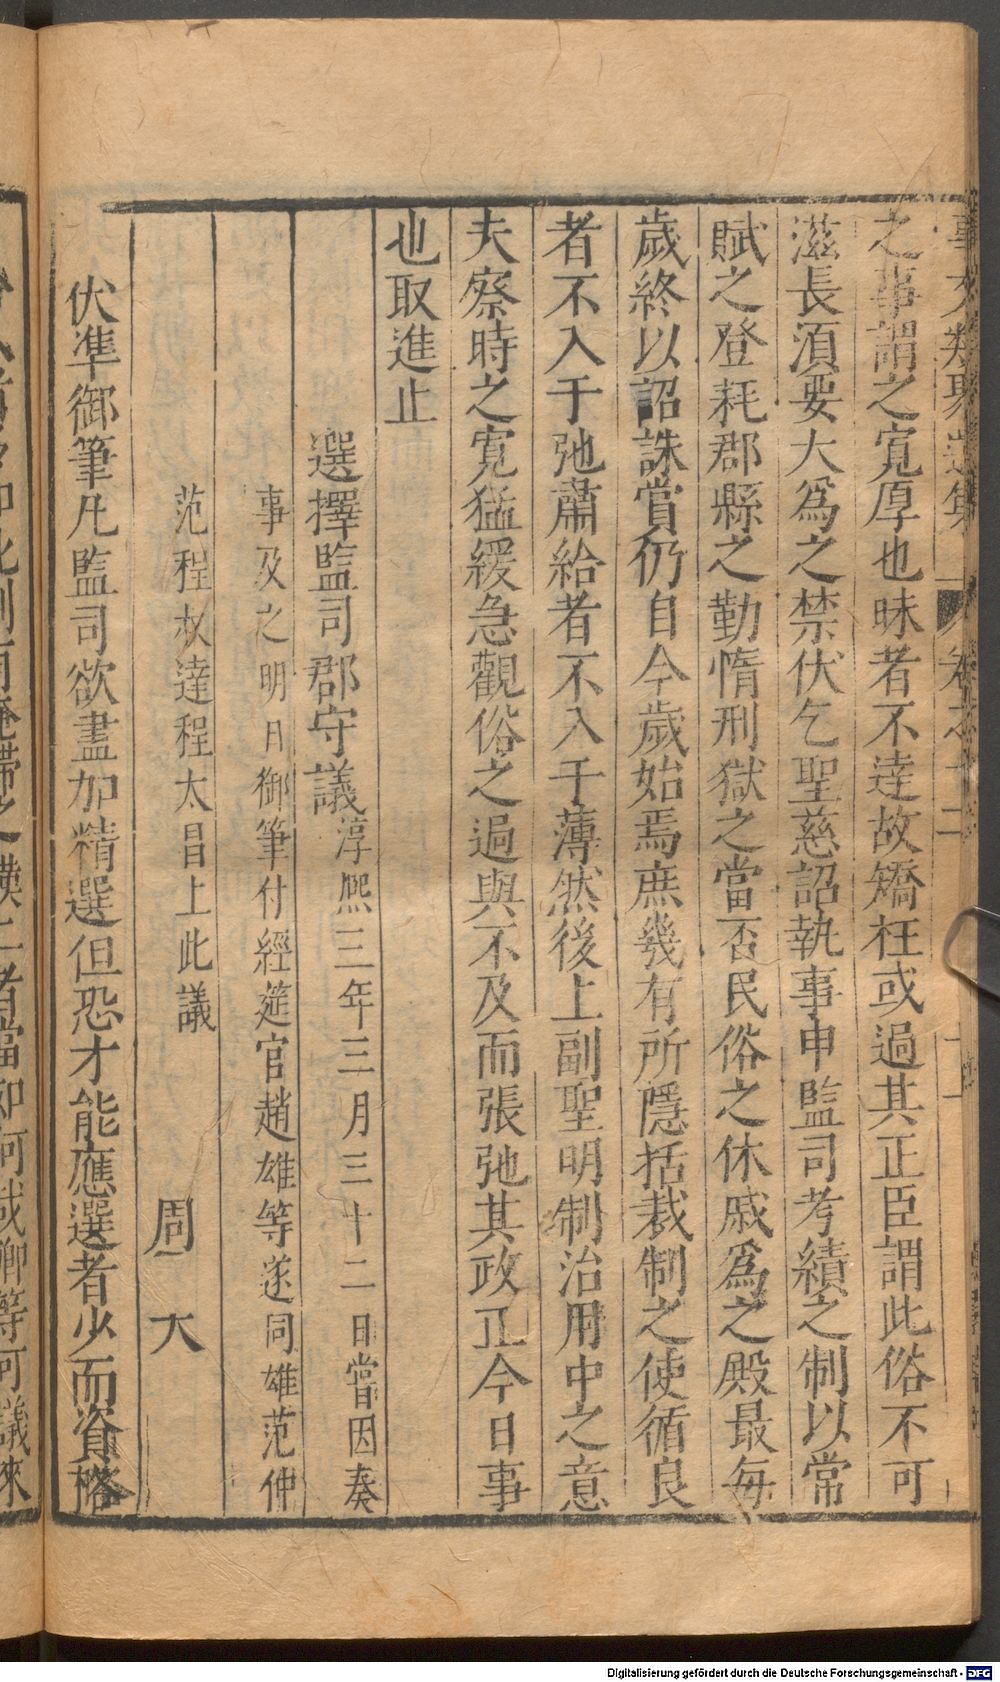 之事謂之寬厚也昧者不達故矯枉或過其正臣謂此俗不可
滋長須要大爲之禁伏乞聖慈詔執事申監司考績之制以常
賦之登耗郡縣之勤惰刑獄之當否民俗之休戚爲之殿最每
歲終以詔誅賞仍自今歲始焉庶幾有所隱括裁制之使循良
者不入于弛肅給者不入于薄然後上副聖明制治用中之意
夫察時之寬猛緩急觀俗之過與不及而張弛其政正今日事
也取進止
選擇監司郡守議淳熙三年三月三十二日嘗因奏
事及之明日御筆付經筵官趙雄等遂同雄范仲
范程叔達程大昌上此議
周大
伏準御筆凡監司欲盡加精選但恐才能應選者少而資格
Digitalisierung gefördert durch die Deutsche Forschungsgemeinschaft - DFG